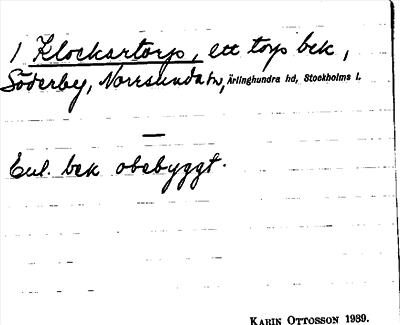 1 Klockartorp, ett torp bek,
Söderby, Norrsunda sn, Ärlinghundra hd, Stockholms l.
—
Enl. bek obebyggt.
KARIN OTTOSSON 1939.